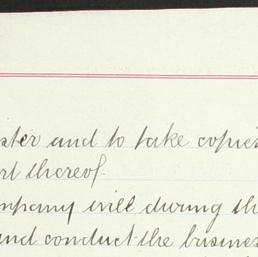 ster and to take copies
rt thereof.
mpany will during th
and conduct the busines